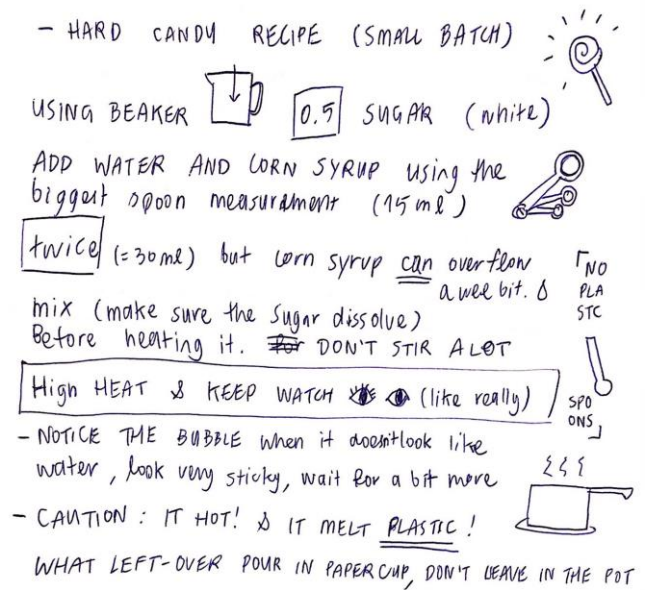 - HARD CANDY RECIPE (SMALL BATCH)
USING BEAKER 0.5 SUGAR (white)
ADD WATER AND CORN SYRUP using the
biggest spoon measurement (15 ml)
twice (=30 ml) but corn syrup can overflow
a wee bit. &
mix (make sure the sugar dissolve)
Before heating it. DON'T STIR A LOT
High HEAT & KEEP WATCH (like really)
- NOTICE THE BUBBLE when it doesn't look like
water, look very sticky, wait for a bit more
- CAUTION : IT HOT! & IT MELT PLASTIC!
WHAT LEFT-OVER POUR IN PAPER CUP, DON'T LEAVE IN THE POT
「NO
PLA
STC
SPO
ONS」